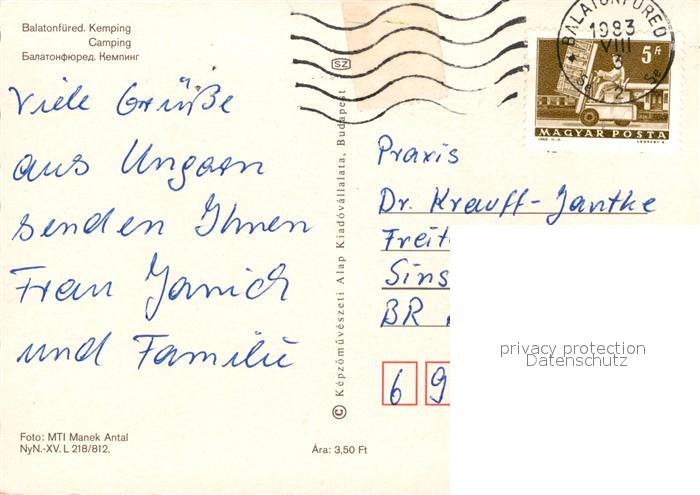 Balatonfüred. Kemping
Camping
Балатонфюред. Кемпинг
Viele Grüße
aus Ungarn
senden Ihnen
Frau Janich
und Familie
Foto: MTI Manek Antal
NyN.-XV. L 218/812.
SZ
© Képzőművészeti Alap Kiadóvállalata, Budapest
Ára: 3,50 Ft
BALATONFÜRED
1983
VIII
3
5 Ft
MAGYAR POSTA
Praxis
Dr. Krauff-Jantke
Freit
Sins
BR
6 9
privacy protection
Datenschutz